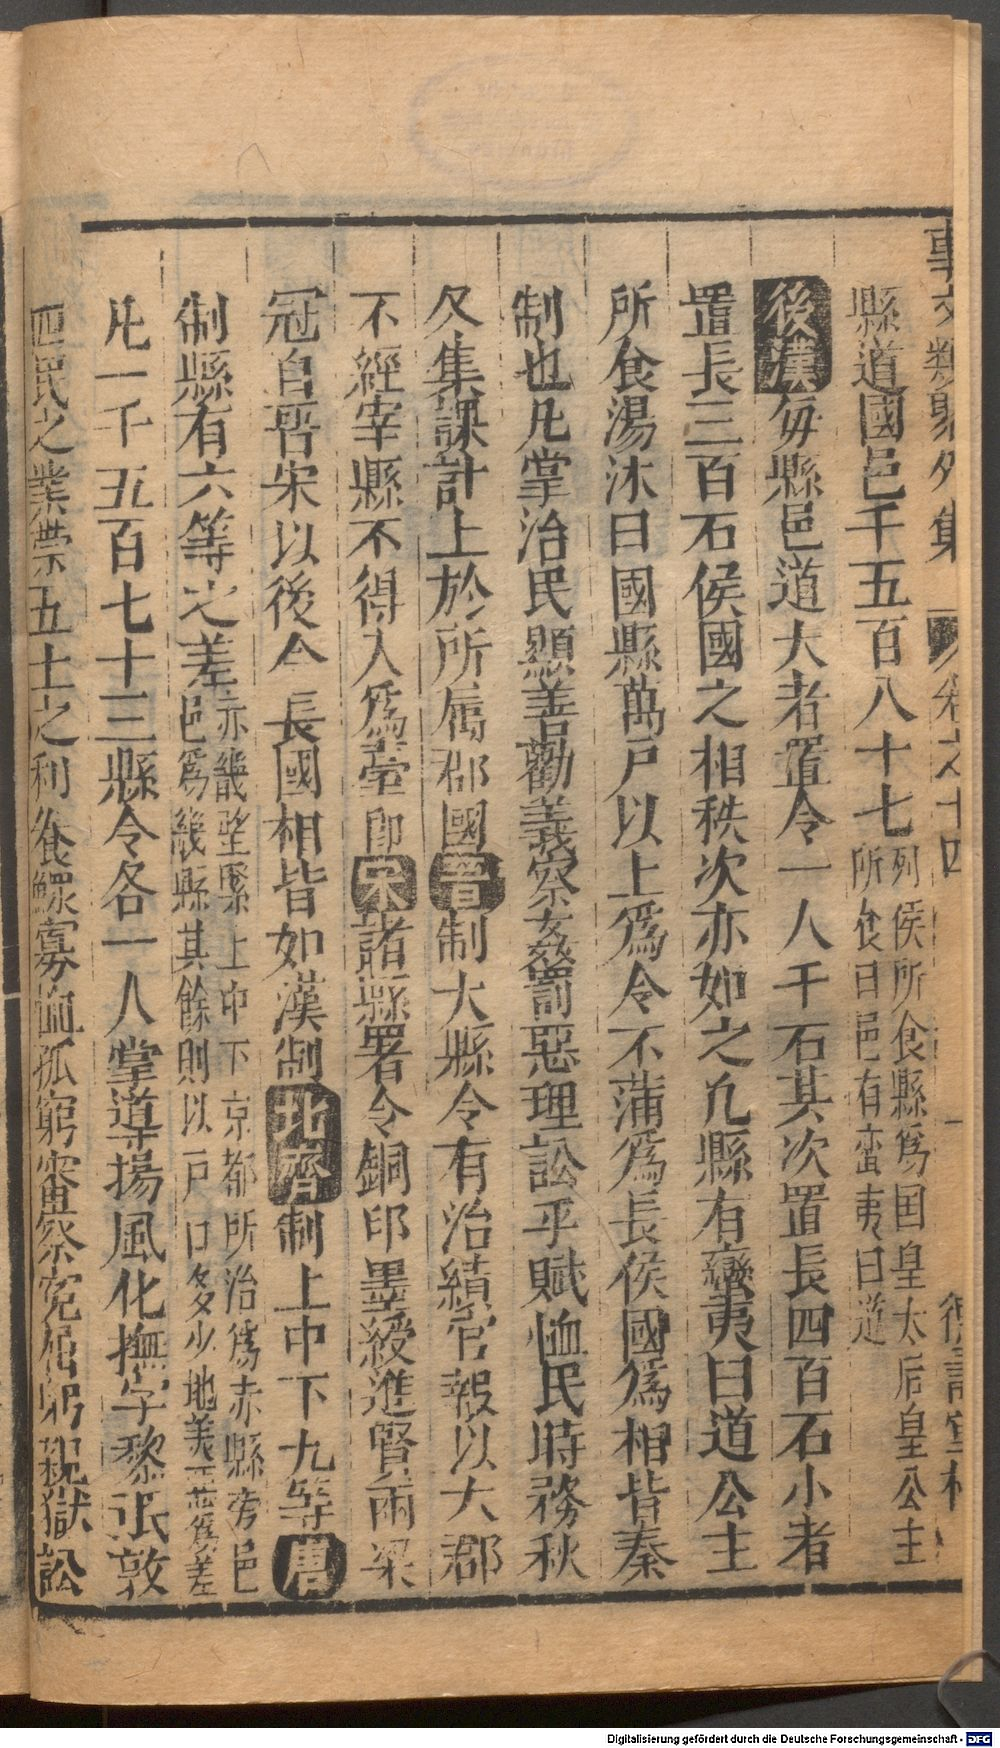 事文類聚外集 卷之十四 德壽堂梓
縣道國邑千五百八十七列侯所食縣爲国皇太后皇公主所食曰邑有蛮夷曰道
後漢每縣邑道大者置令一人千石其次置長四百石小者
置長三百石侯國之相秩次亦如之凡縣有蠻夷曰道公主
所食湯沐曰國縣萬戸以上爲令不蒲爲長侯國爲相皆秦
制也凡掌治民顯善勸義察姦罰惡理訟平賦恤民時務秋
冬集課計上於所属郡國晉制大縣令有治績官報以大郡
不經宰縣不得入爲臺郎宋諸縣署令銅印墨綬進賢兩梁
冠自晉宋以後令長國相皆如漢制北齊制上中下九等唐
制縣有六等之差亦畿望緊上中下京都所治爲赤縣旁邑邑爲畿縣其餘則以戸口多少地美惡爲差
凡一千五百七十三縣令各一人掌導揚風化撫字黎氓敦
四民之業崇五土之利養鰥寡恤孤窮審察寃屈躬親獄訟
Digitalisierung gefördert durch die Deutsche Forschungsgemeinschaft - DFG